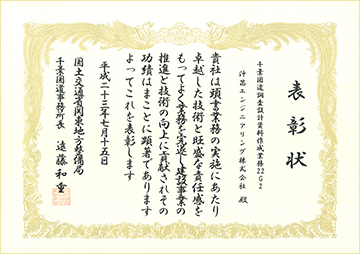 表彰状
千葉国道調査設計資料作成業務22G2
沖昌エンジニアリング株式会社 殿
貴社は頭書業務の実施にあたり
卓越した技術と旺盛な責任感を
もってよく業務を完遂し建設事業の
推進と技術の向上に貢献されその
功績はまことに顕著であります
よってこれを表彰します
平成二十三年七月十五日
国土交通省関東地方整備局
千葉国道事務所長 遠藤和重